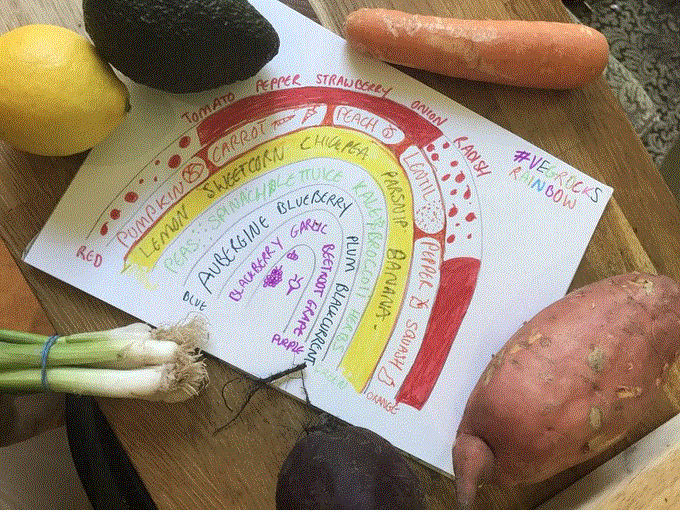 TOMATO PEPPER STRAWBERRY ONION RADISH
RED
PUMPKIN CARROT PEACH LENTIL PEPPER SQUASH
ORANGE
LEMON SWEETCORN CHICKPEA PARSNIP BANANA
PEAS SPINACH LETTUCE KALE BROCCOLI HERBS
GREEN
AUBERGINE BLUEBERRY PLUM BLACKCURRENT
BLUE
BLACKBERRY GARLIC BEETROOT GRAPE
PURPLE
#VEGROCKS
RAINBOW